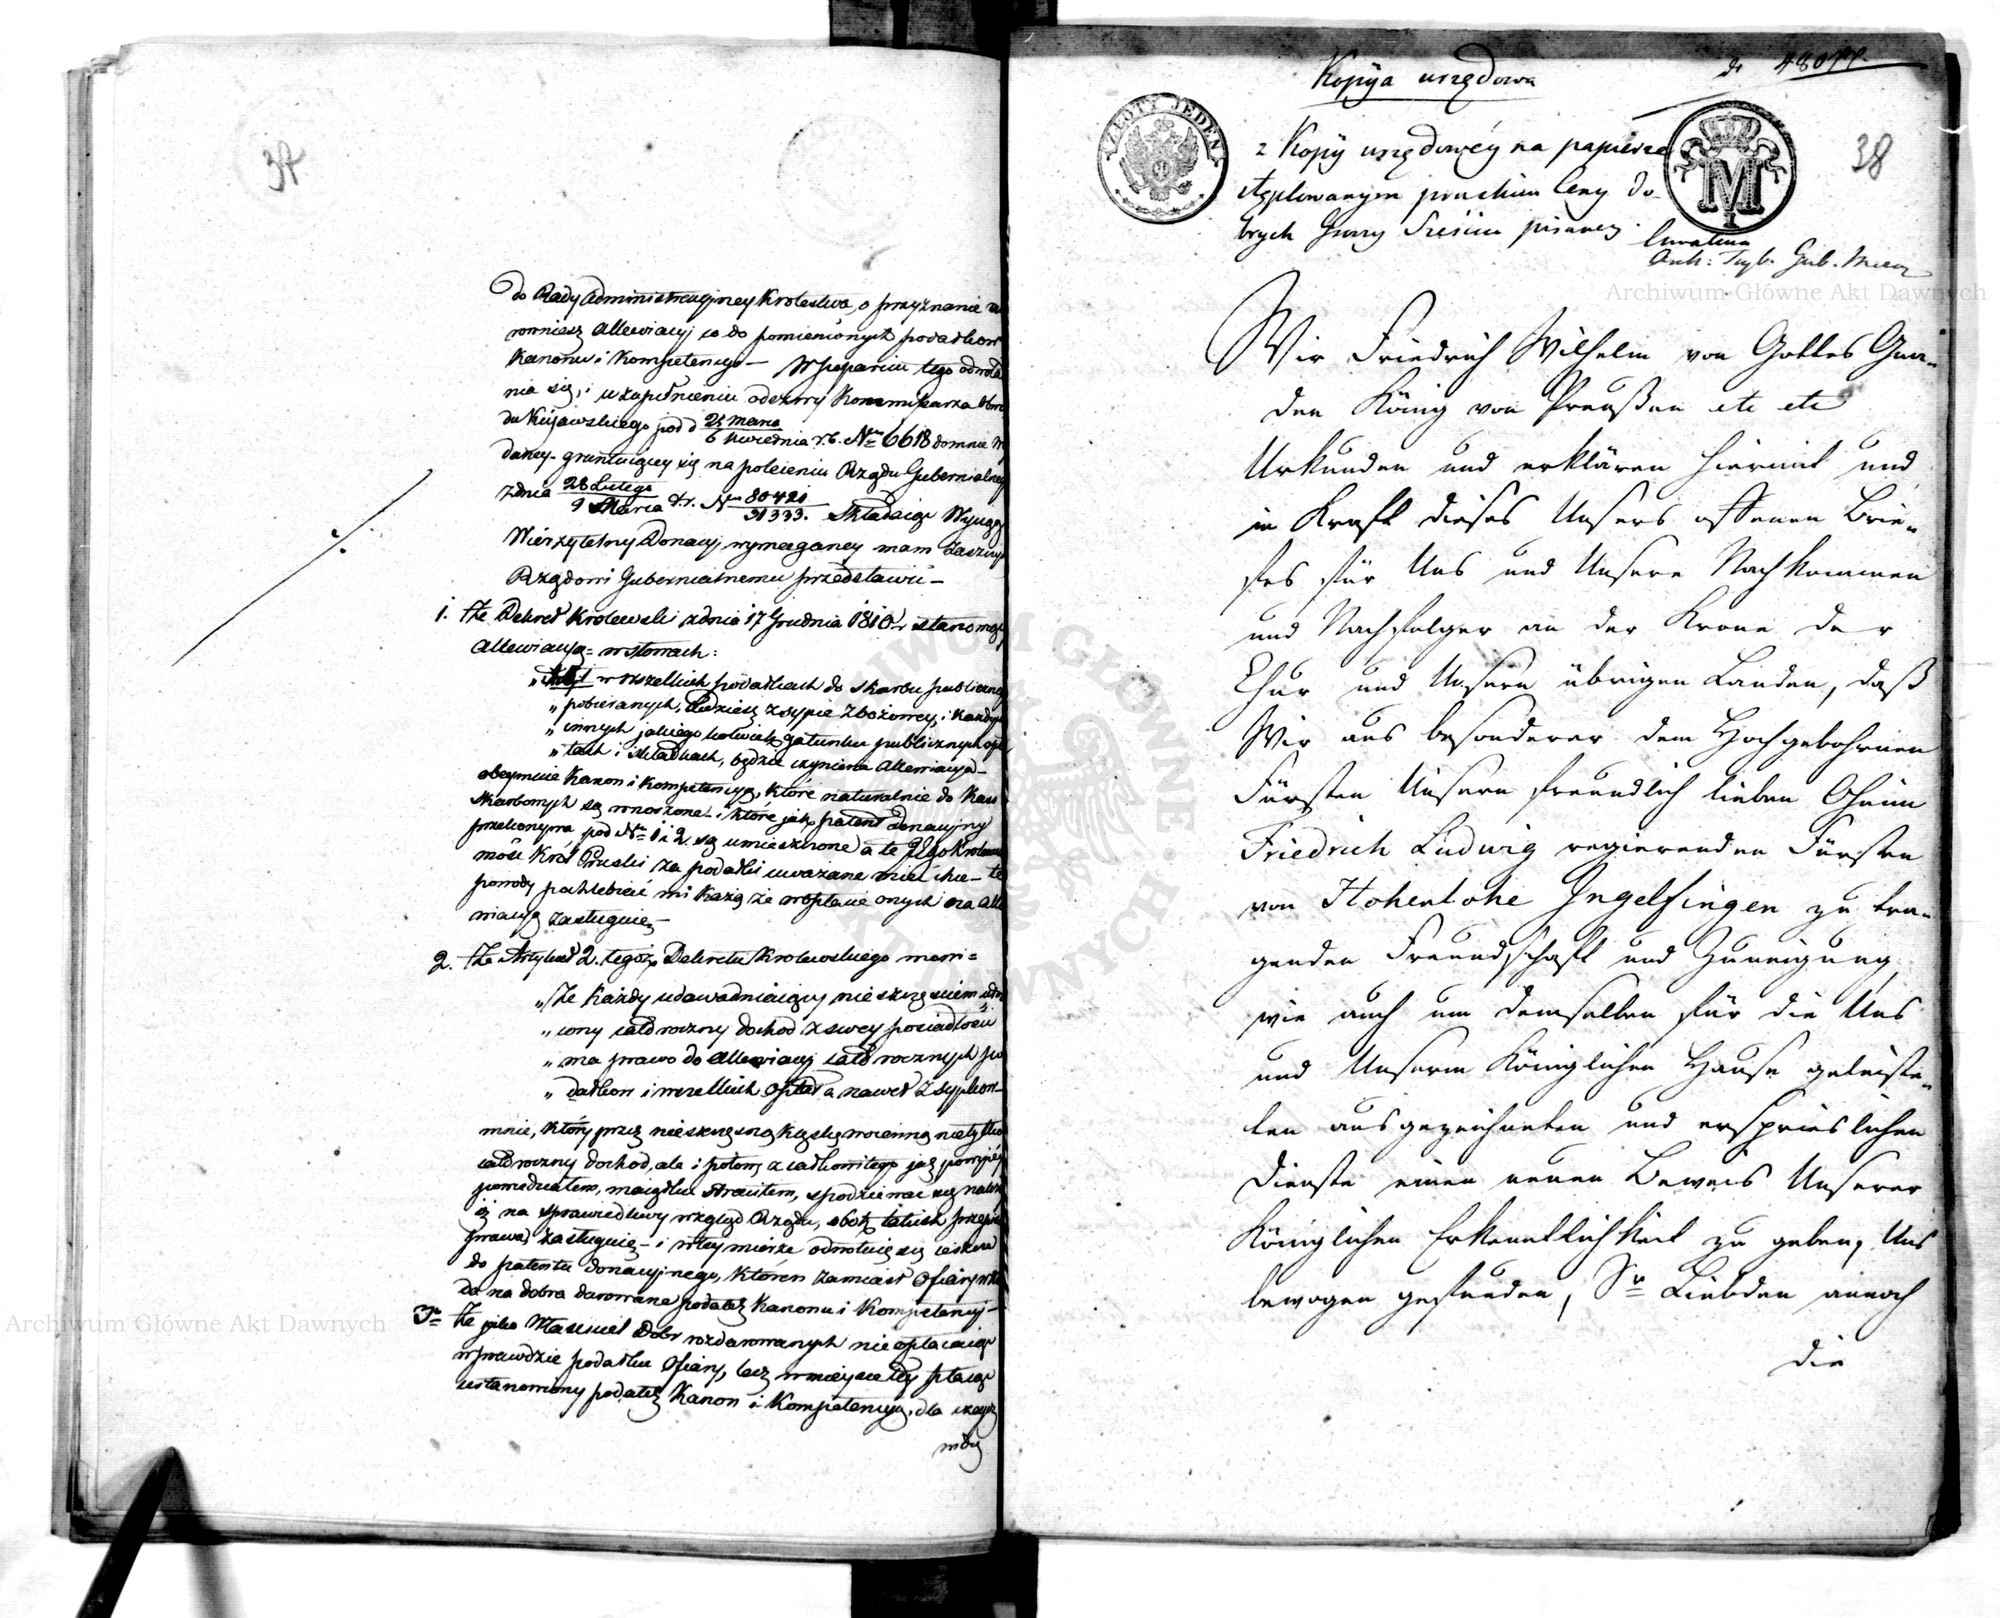 37
do Rady Administracyjney Krolestwa, o przyznanie
rowniesz Allewiacyi co do pomienionych podatkow
Kanonu i Kompetencyi — W poparciu tego odwoła
nia się, i uzupełnieniu odezwy Kommissarza Obwo
du Kujawskiego pod d 25 Marca / 6 Kwietnia r.b. Nro 6618 do mnie wy
daney - gruntuiącey się na poleceniu Rządu Gubernialnego
z dnia 28 Lutego / 9 Marca t.r. Nro 80420 / 31333. Składaiąc
Wierzytelny Donacyi wymaganey mam zaszczyt
Rządowi Gubernialnemu przedstawić —
1. Że Dekret Krolewski z dnia 17 Grudnia 1810 r stanowiąc
Allewiacyą = w słowach:
„ Art. 1 w wszelkich podatkach do skarbu publicznego
„ pobieranych, tudziesz zsypie zbożowey, i każdych
„ innych jakiego kolwiek gatunku publicznych opła
„ tach i składkach, będzie czyniona Allewiacya —
obeymuie Kanon i Kompetencyą, które naturalnie do Kass
Skarbowych są wnoszone — i które jak patent donacyiny
przekonywa pod Nro 1 i 2 są umieszczone a te Jego Krolewska
mość Król Pruski za podatki uważane mieć chce — te
powody pochlebiać mi każą że wopłacie onych na Alle
wiacyą zasługuię —
2. Że Artykuł 2. tegóż Dekretu Krolewskiego mowi =
„ Że Każdy udawadniaiący nieszczęściem
„ cony całoroczny dochod z swey posiadłości
„ ma prawo do Allewiacyi całorocznych po
„ datkow i wszelkich Opłat a nawet Zsypkow —
mnie, który przez nieszczęsną klęskę woienną nie tylko
całoroczny dochod, ale i połowę z całkowitego jak powyżey
powiedziałem, maiątku straciłem, spodziewać się należy
iż na sprawiedliwy wzgląd Rządu, obok takich przepisow
prawa zasługuię — i w tey mierze odwołuię się ieszcze
do patentu donacyjnego, który zamiast Ofiary wkła
da na dobra darowane podatek Kanonu i Kompetencyi —
3o Że jako Właściciel Dobr rozdarowanych nie opłacaiąc
wprawdzie podatku Ofiary, lecz w mieysce tey płacąc
ustanowiony podatek Kanon i Kompetencyą, dla czegoż
miał
Kopija urzędowa
38
ZŁOTY JEDEN
z Kopij urzędowéy na papierze
stęplowanym pruskim Ceny do
brych Groszy Sześciu pisaney.
Arch: Tryb. Gub. Mazow
Wir Friedrich Wilhelm von Gottes Gna-
den König von Preußen etc etc
Urkunden und erklären hiermit und
in Kraft dieses Unsers offenen Brie-
fes für Uns und Unsere Nachkommen
und Nachfolger an der Krone der
Chur und Unsern übrigen Landen, daß
Wir aus besonderer dem Hochgebohrnen
Fürsten Unsern freundlich lieben Oheim
Friedrich Ludwig regierenden Fürsten
von Hohenlohe Ingelfingen zu tra-
genden Freundschaft und Zuneigung
wie auch um demselben für die Uns
und Unserm Königlichen Hause geleiste-
ten ausgezeichneten und ersprieslichen
Dienste einen neuen Beweis Unserer
Königlichen Erkenntlichkeit zu geben, Uns
bewogen gefunden, Sr Liebden annoch
die
Archiwum Główne Akt Dawnych
Archiwum Główne Akt Dawnych